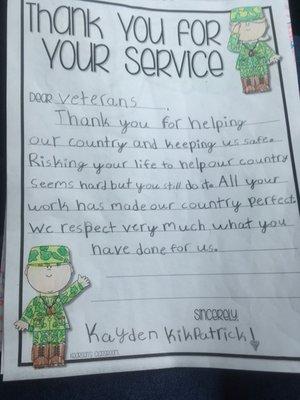 Thank you for
your service
Dear veterans.
Thank you for helping
our country and keeping us safe.
Risking your life to help our country
seems hard but you still do it. All your
work has made our country perfect.
We respect very much what you
have done for us.
Sincerely,
Kayden Kikpatrick!